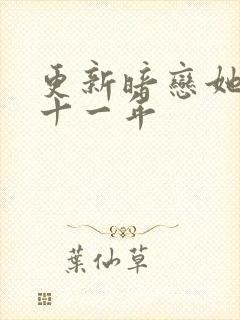 更新暗戀她
十一年
葉仙草